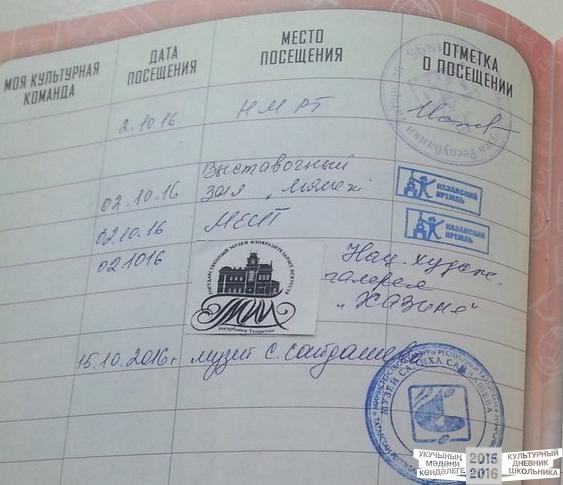 МОЯ КУЛЬТУРНАЯ
КОМАНДА
ДАТА
ПОСЕЩЕНИЯ
МЕСТО
ПОСЕЩЕНИЯ
ОТМЕТКА
О ПОСЕЩЕНИИ
2.10.16 НМРТ
02.10.16 Выставочный
зал „Манеж"
КАЗАНСКИЙ
КРЕМЛЬ
02.10.16 МЕИТ
КАЗАНСКИЙ
КРЕМЛЬ
02.1016
ГОСУДАРСТВЕННЫЙ МУЗЕЙ ИЗОБРАЗИТЕЛЬНЫХ ИСКУССТВ
республики Татарстан
Нац. худож.
галерея
„Хазинә"
15.10.2016г музей С. Сайдашева
МИНИСТЕРСТВО КУЛЬТУРЫ РЕСПУБЛИКИ
МУЗЕЙ САЛИХА САЙДАШЕВА
УКУЧЫНЫҢ
МӘДӘНИ
КӨНДӘЛЕГЕ
2015
2016
КУЛЬТУРНЫЙ
ДНЕВНИК
ШКОЛЬНИКА